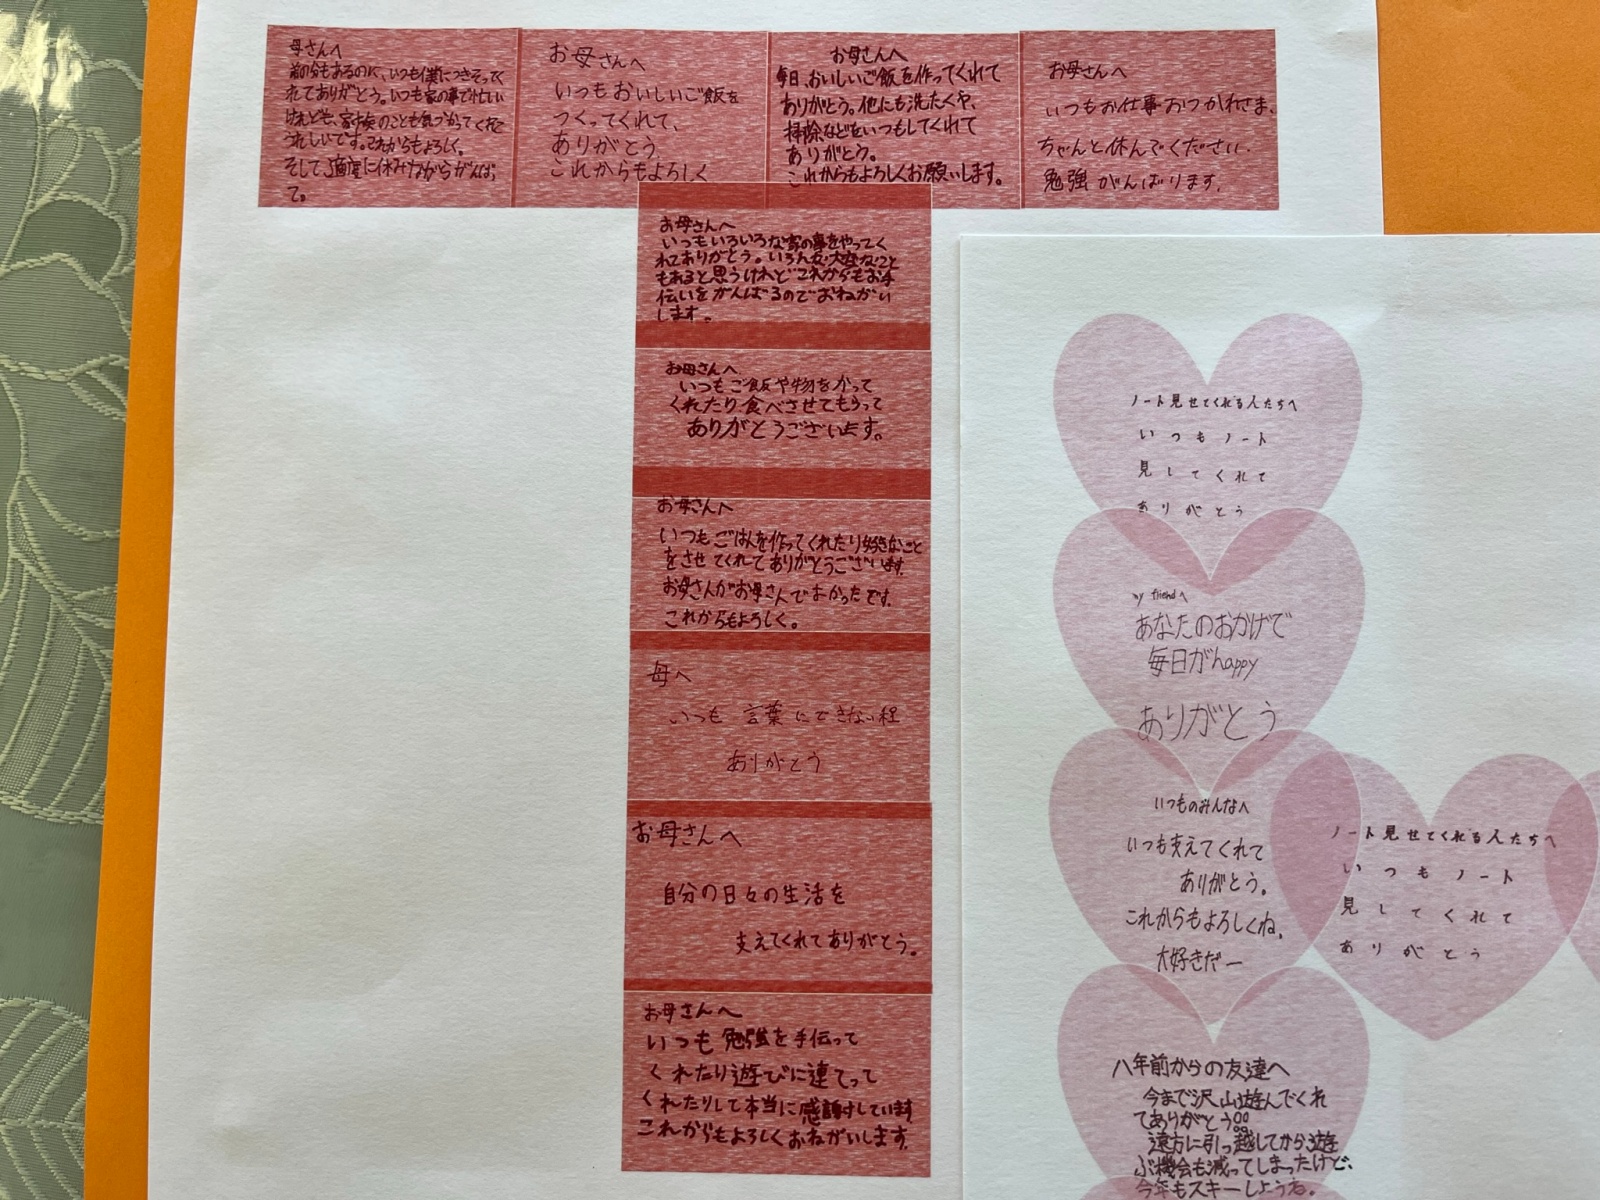 母さんへ
前の分もあるのに、いつも僕につきそってく
れてありがとう。いつも家の事で忙しい
けれども、家族のことも気づかってくれて
うれしいです。これからもよろしく。
そして適度に休みながらがんばっ
て。
お母さんへ
いつもおいしいご飯を
つくってくれて、
ありがとう
これからもよろしく
お母さんへ
毎日、おいしいご飯を作ってくれて
ありがとう。他にも洗たくや、
掃除などをいつもしてくれて
ありがとう。
これからもよろしくお願いします。
お母さんへ
いつもお仕事おつかれさま、
ちゃんと休んでください、
勉強がんばります。
お母さんへ
いつもいろいろな家の事をやってく
れてありがとう。いろんな大変なこと
もあると思うけれどこれからもお手
伝いをがんばるのでおねがい
します。
お母さんへ
いつもご飯や物をかって
くれたり食べさせてもらって
ありがとうございます。
お母さんへ
いつもごはんを作ってくれたり好きなこと
をさせてくれてありがとうございます。
お母さんがお母さんでよかったです。
これからもよろしく。
母へ
いつも言葉にできない程
ありがとう
お母さんへ
自分の日々の生活を
支えてくれてありがとう。
お母さんへ
いつも勉強を手伝って
くれたり遊びに連てって
くれたりして本当に感謝しています
これからもよろしくおねがいします。
ノート見せてくれる人たちへ
いつもノート
見してくれて
ありがとう
my friendへ
あなたのおかげで
毎日がhappy
ありがとう
いつものみんなへ
いつも支えてくれて
ありがとう。
これからもよろしくね、
大好きだー
ノート見せてくれる人たちへ
いつもノート
見してくれて
ありがとう
八年前からの友達へ
今まで沢山遊んでくれ
てありがとう。
遠方に引っ越してから遊
ぶ機会も減ってしまったけど、
今年もスキーしようね。